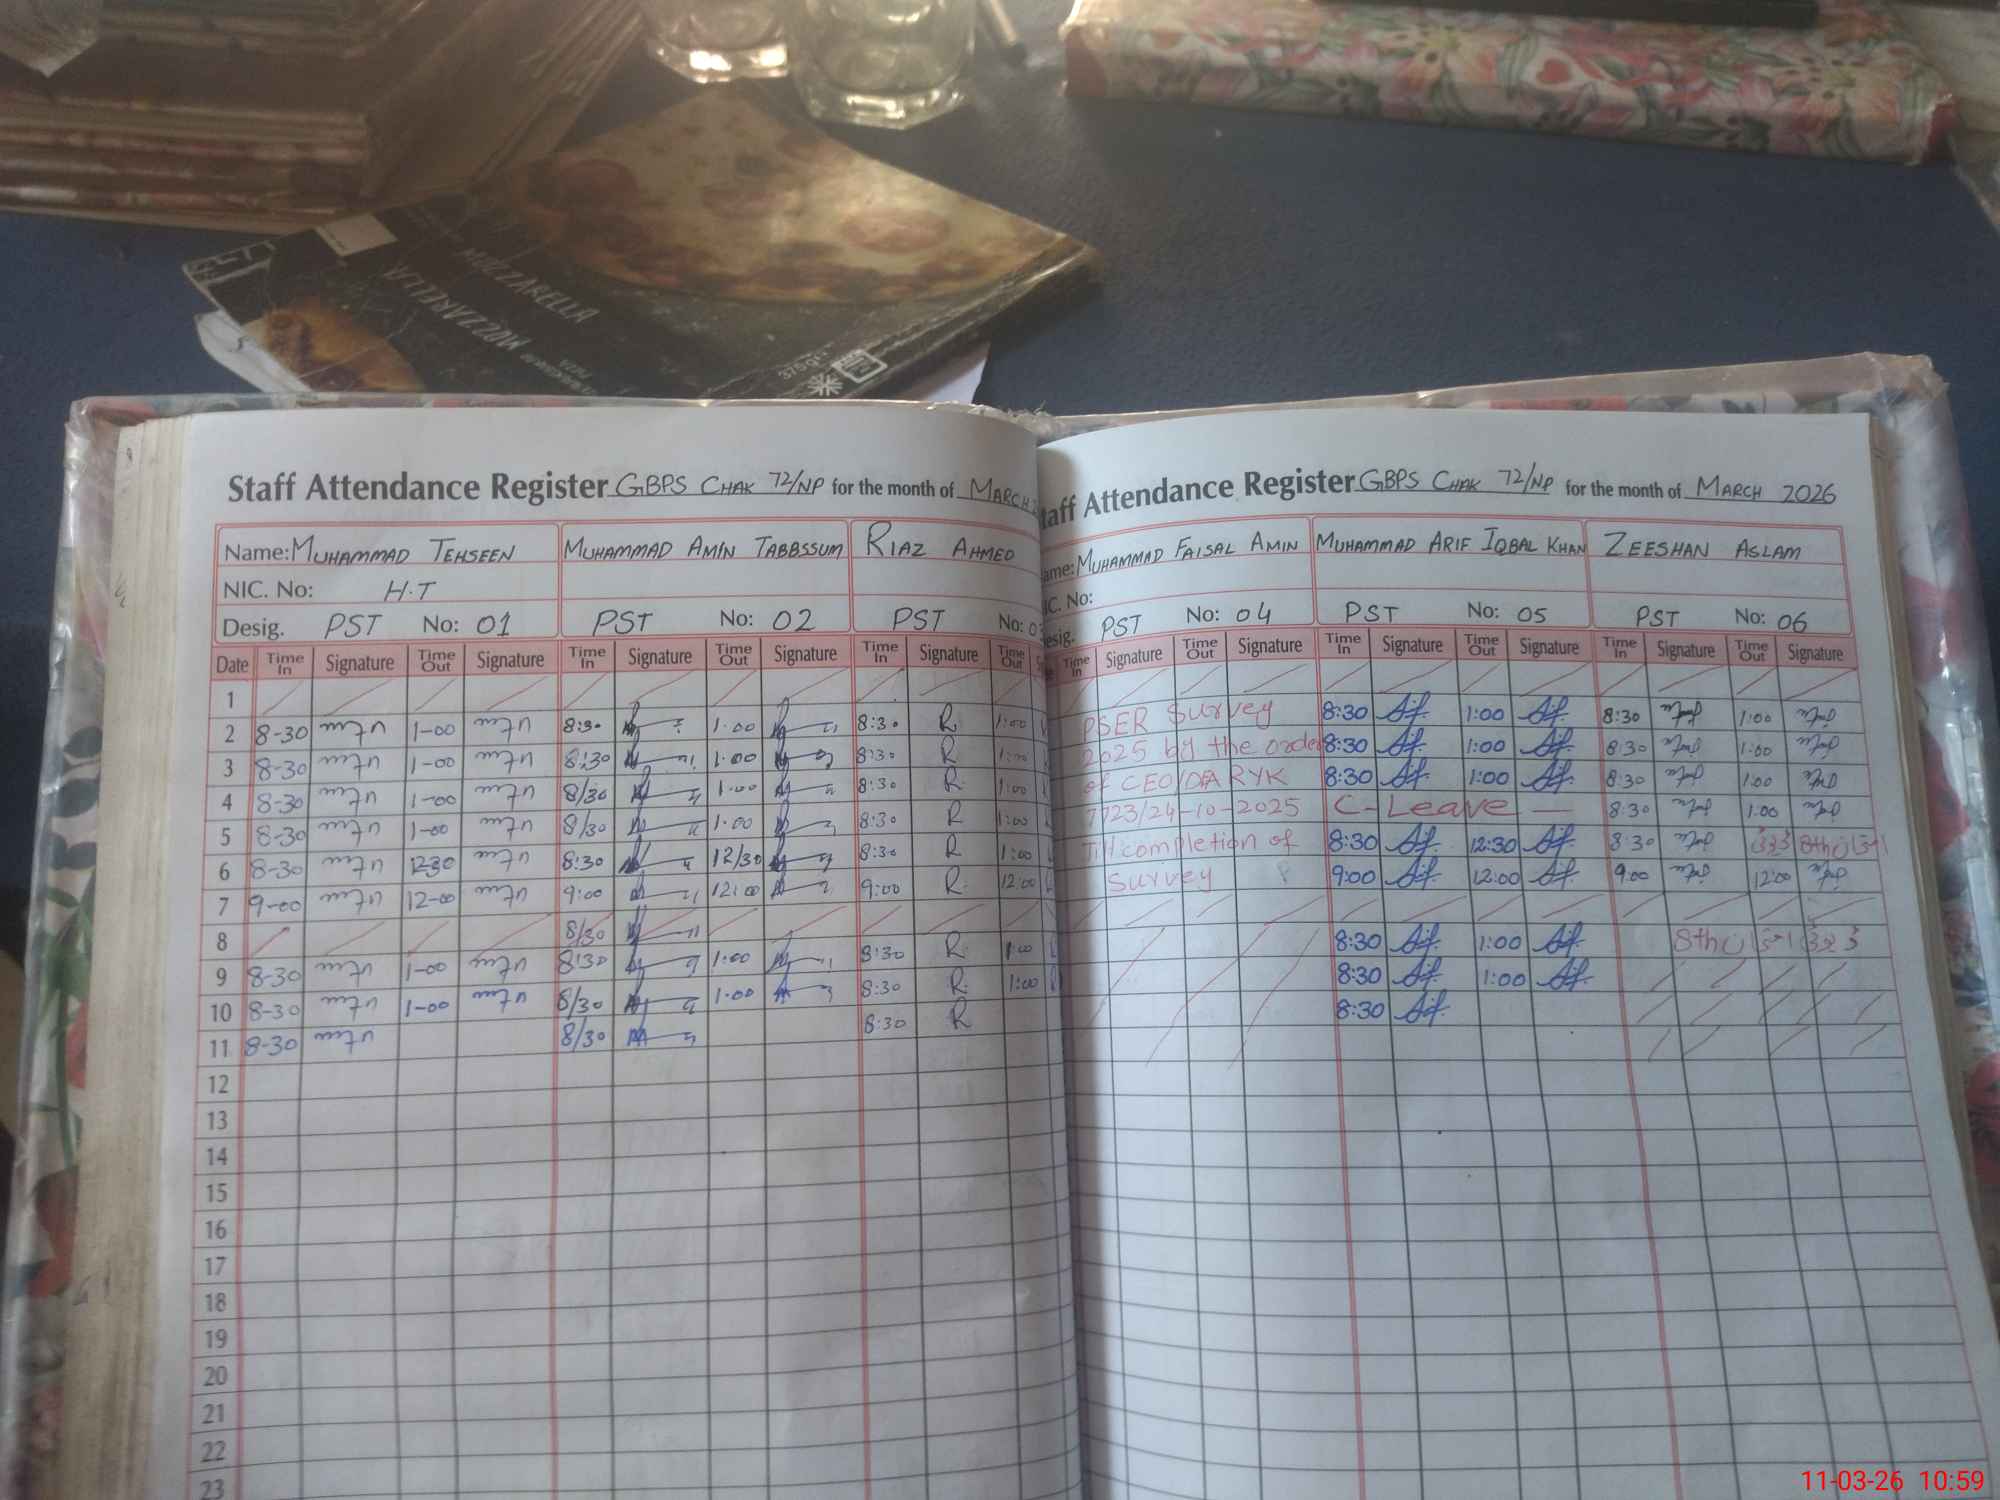 MOZZARELLA
MOZZARELLA
375g
Staff Attendance Register GBPS CHAK 72/NP for the month of MARCH
Name: MUHAMMAD TEHSEEN MUHAMMAD AMIN TABBSSUM RIAZ AHMED
NIC. No: H.T
Desig. PST No: 01 PST No: 02 PST No: 03
Date Time In Signature Time Out Signature Time In Signature Time Out Signature Time In Signature Time Out
1
2 8-30 1-00 8:30 1.00 8:30 R. 1:00
3 8-30 1-00 8:30 1.00 8:30 R 1:00
4 8-30 1-00 8/30 1.00 8:30 R. 1:00
5 8-30 1-00 8/30 1.00 8:30 R 1:00
6 8-30 1230 8:30 12/30 8:30 R 1:00
7 9-00 12-00 9:00 12:00 9:00 R. 12:00
8 8/30
9 8-30 1-00 8:30 1:00 8:30 R. 1:00
10 8-30 1-00 8/30 1.00 8:30 R. 1:00
11 8-30 8/30 8:30 R
12
13
14
15
16
17
18
19
20
21
22
23
taff Attendance Register GBPS CHAK 72/NP for the month of MARCH 2026
ame: MUHAMMAD FAISAL AMIN MUHAMMAD ARIF IQBAL KHAN ZEESHAN ASLAM
IC. No:
esig. PST No: 04 PST No: 05 PST No: 06
Time In Signature Time Out Signature Time In Signature Time Out Signature Time In Signature Time Out Signature
PSER Survey 8:30 1:00 8:30 1:00
2025 by the order 8:30 1:00 8:30 1:00
of CEO/DEA RYK 8:30 1:00 8:30 1:00
7723/24-10-2025 C-Leave 8:30 1:00
Till completion of 8:30 12:30 8:30
Survey 9:00 12:00 9:00 12:00
8:30 1:00 8th
8:30 1:00
8:30
11-03-26 10:59